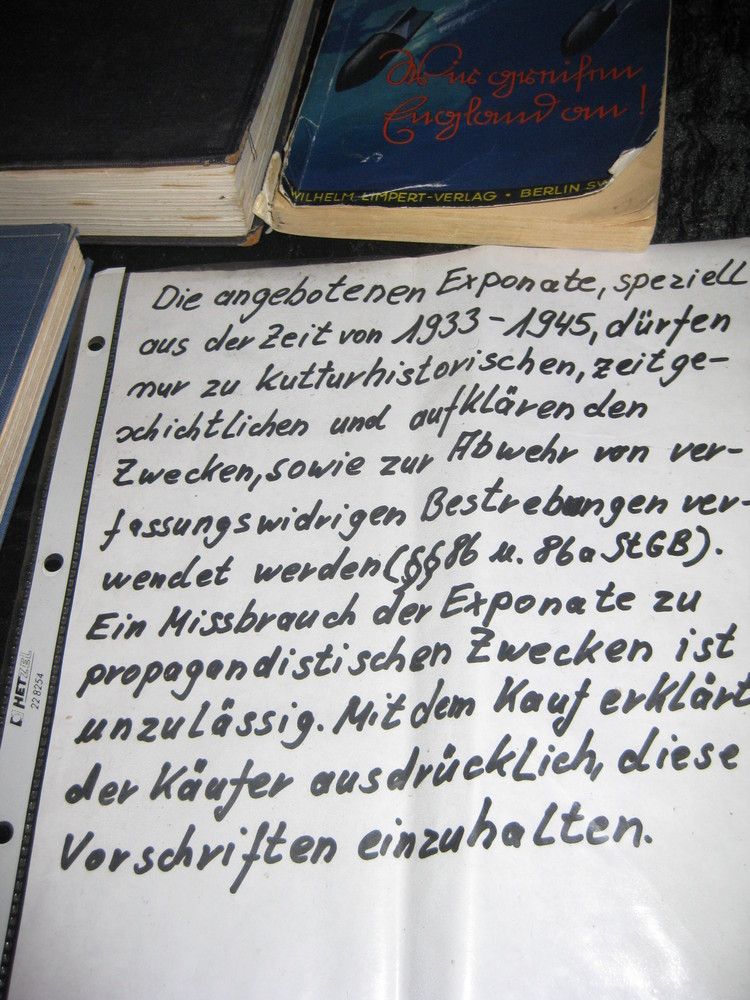 Wir greifen
England an!
WILHELM LIMPERT-VERLAG • BERLIN SW
Die angebotenen Exponate, speziell
aus der Zeit von 1933-1945, dürfen
nur zu kulturhistorischen, zeitge-
schichtlichen und aufklärenden
Zwecken, sowie zur Abwehr von ver-
fassungswidrigen Bestrebungen ver-
wendet werden (§§86 u. 86a StGB).
Ein Missbrauch der Exponate zu
propagandistischen Zwecken ist
unzulässig. Mit dem Kauf erklärt
der Käufer ausdrücklich, diese
Vorschriften einzuhalten.
HETZEL
22 8254